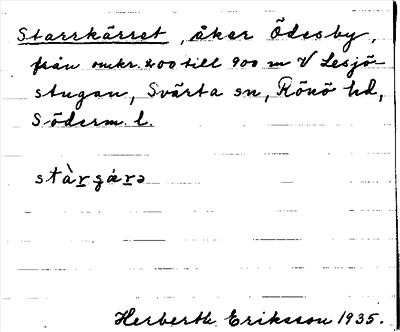 Starrkärret, åker Ödesby,
från omkr. 200 till 900 m V Lesjö-
stugan, Svärta sn, Rönö hd,
Söderm. l.
stàrɡárə
Herberth Eriksson 1935.